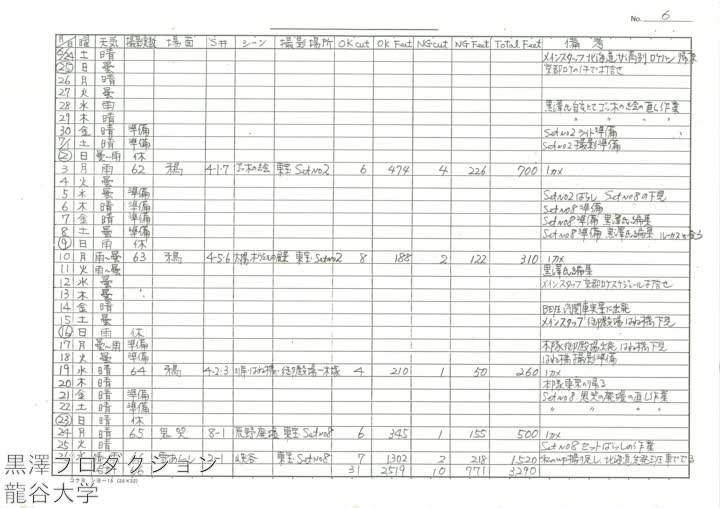 No. 6
月/日 曜 天気 撮影実数 場面 S# シーン 撮影場所 OK cut OK Feet NG cut NG Feet Total Feet 備考
6/24 土 晴 メインスタッフ 北海道 帰京
㉕ 日 曇
26 月 晴
27 火 曇
28 水 雨 黒澤氏自宅にてゴッホの絵の直し作業
29 木 晴 〃 〃 〃 〃
30 金 晴 準備 Set no2 ライト準備
7/1 土 晴 準備 Set no2 撮影準備
② 日 曇〜雨 休
3 月 雨 62 鴉 4-1・7 ゴッホの絵 東宝 Set no2 6 474 4 226 700 1カメ
4 火 曇
5 水 曇 準備 Set no2ばらし Set no8の下見
6 木 晴 準備 Set no8 準備
7 金 晴 準備 Set no8 準備 黒澤氏編集
8 土 曇 準備 Set no8 準備 黒澤氏編集
⑨ 日 雨 休
10 月 雨〜曇 63 鴉 4-5・6 東宝・Set no2 8 188 2 122 310 1カメ
11 火 雨〜曇 黒澤氏編集
12 水 曇 メインスタッフ 京都ロケスケジュール打合せ
13 木 曇
14 金 晴
15 土 曇 メインスタッフ 御殿場 はね橋下見
⑯ 日 雨 休
17 月 曇〜雨 準備 本隊御殿場出発 はね橋下見
18 火 曇 準備 はね橋撮影準備
19 水 晴 64 鴉 4-2・3 4 210 1 50 260 1カメ
20 木 晴 本隊東京へ帰る
21 金 晴 準備 Set no8 鬼哭の廃墟の直し作業
22 土 晴 準備 〃 〃 〃 〃
㉓ 日 晴 休
24 月 晴 65 鬼哭 8-1 荒野廃墟 東宝 Set no8 6 345 1 155 500 1カメ
25 火 晴 Set no8 セットばらしの作業
雪あらし 2-1 峡谷 東宝・Set no8 7 1302 2 218 1520
31 2519 10 771 3290
黒澤プロダクション
龍谷大学